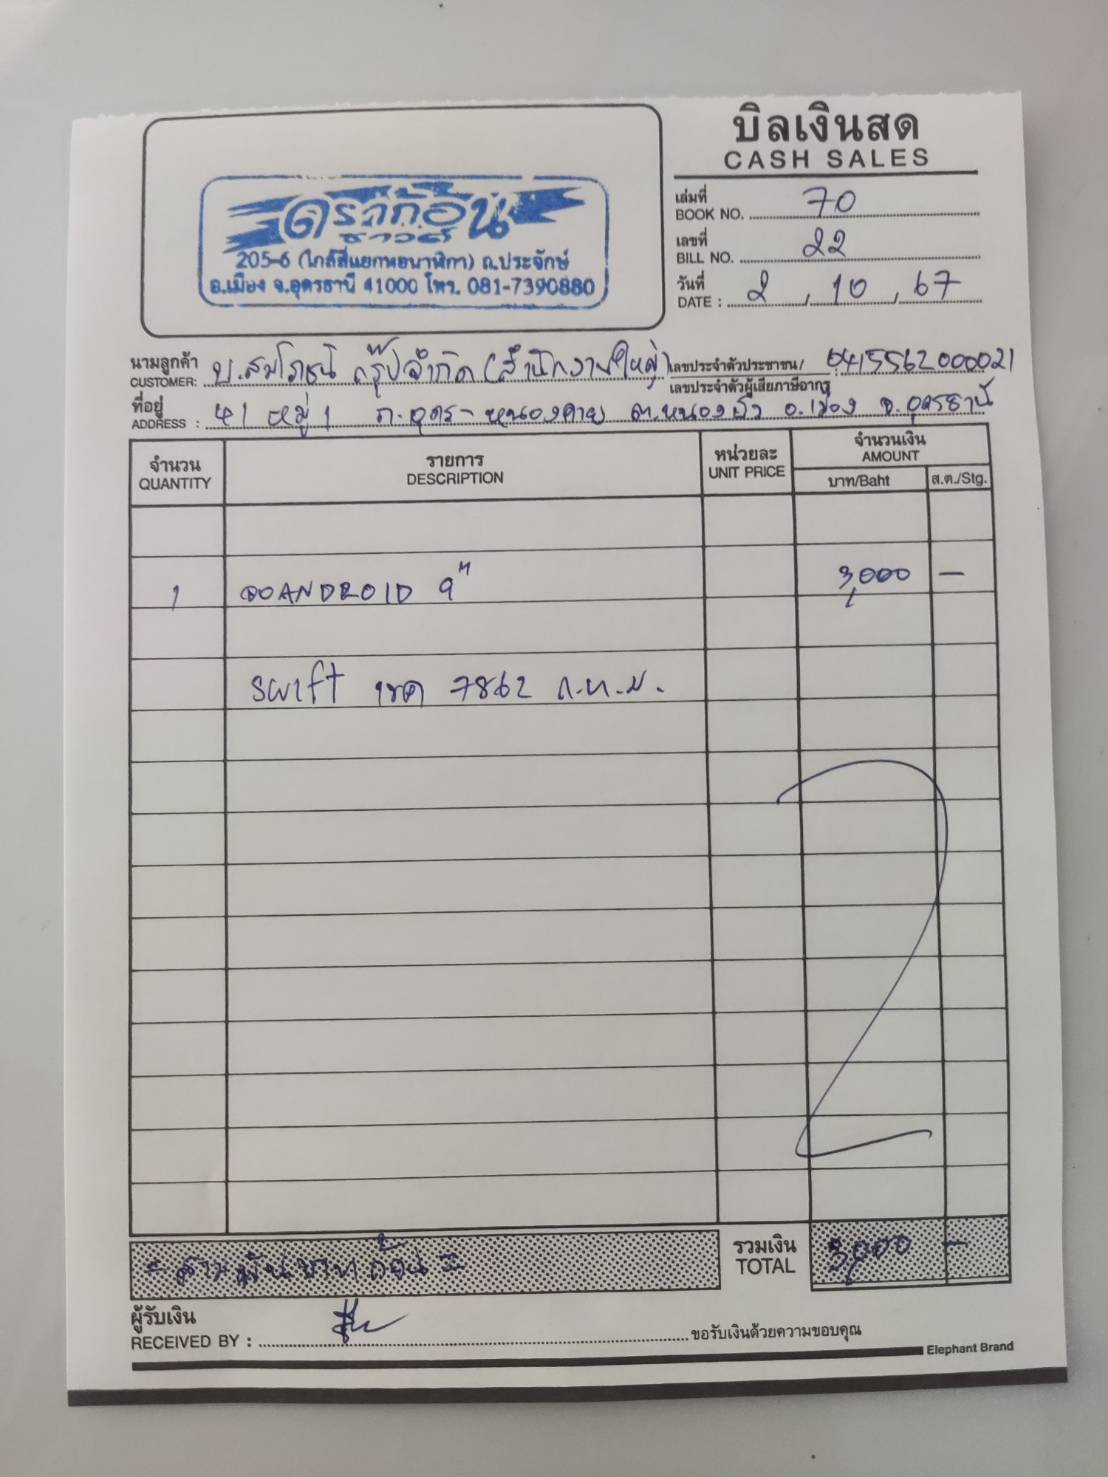 บิลเงินสด
CASH SALES
ดราก้อน
ซาวด์
205-6 (ใกล้สี่แยกหอนาฬิกา) ถ.ประจักษ์
อ.เมือง จ.อุดรธานี 41000 โทร. 081-7390880
เล่มที่
BOOK NO. 70
เลขที่
BILL NO. 22
วันที่
DATE : 2 , 10 , 67
นามลูกค้า
CUSTOMER: บ.สมโภชน์ กรุ๊ป จำกัด (สำนักงานใหญ่)
เลขประจำตัวประชาชน/
เลขประจำตัวผู้เสียภาษีอากร 0415562000021
ที่อยู่
ADDRESS : 41 หมู่ 1 ถ.อุดร-หนองคาย ต.หนองบัว อ.เมือง จ.อุดรธานี
จำนวน
QUANTITY
รายการ
DESCRIPTION
หน่วยละ
UNIT PRICE
จำนวนเงิน
AMOUNT
บาท/Baht ส.ต./Stg.
1 จอANDROID 9" 3,000 –
swift 7862 ก.ท.ม.
= สามพันบาทถ้วน =
รวมเงิน
TOTAL 3,000 –
ผู้รับเงิน
RECEIVED BY :
ขอรับเงินด้วยความขอบคุณ
Elephant Brand